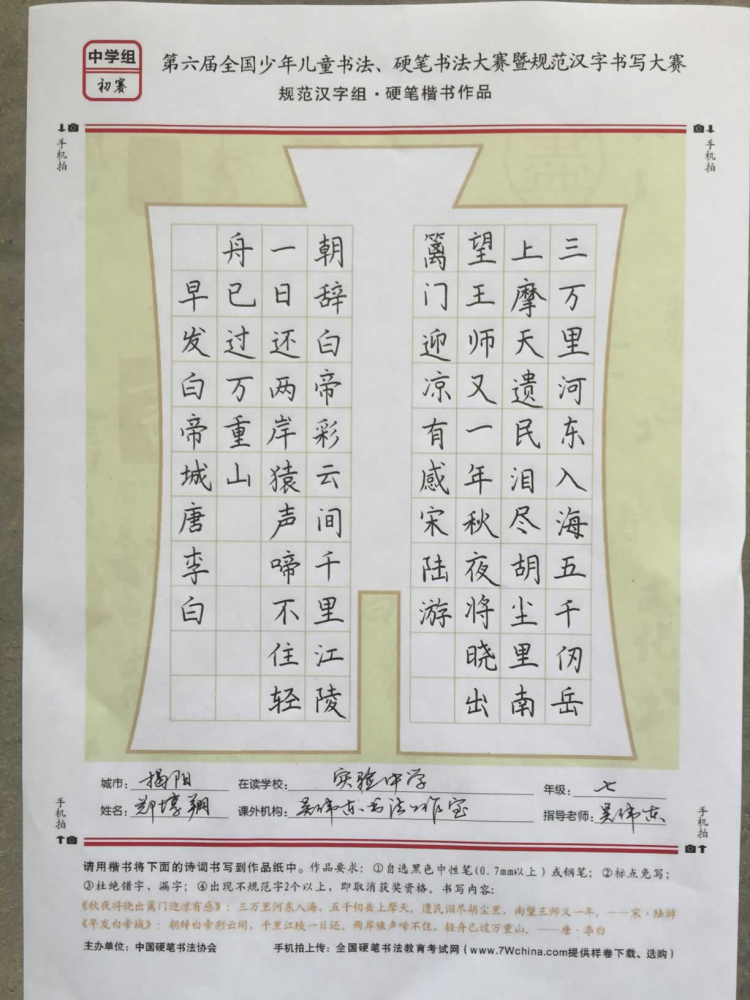 中学组
初赛
第六届全国少年儿童书法、硬笔书法大赛暨规范汉字书写大赛
规范汉字组·硬笔楷书作品
手机拍
手机拍
三万里河东入海五千仞岳
上摩天遗民泪尽胡尘里南
望王师又一年秋夜将晓出
篱门迎凉有感宋陆游
朝辞白帝彩云间千里江陵
一日还两岸猿声啼不住轻
舟已过万重山
早发白帝城唐李白
城市：揭阳 在读学校：实验中学 年级：七
姓名： 课外机构：吴伟东书法工作室 指导老师：吴伟东
手机拍
手机拍
请用楷书将下面的诗词书写到作品纸中。作品要求：①自选黑色中性笔(0.7mm以上)或钢笔；②标点免写；
③杜绝错字、漏字；④出现不规范字2个以上，即取消获奖资格。书写内容：
《秋夜将晓出篱门迎凉有感》：三万里河东入海，五千仞岳上摩天。遗民泪尽胡尘里，南望王师又一年。——宋·陆游
《早发白帝城》：朝辞白帝彩云间，千里江陵一日还。两岸猿声啼不住，轻舟已过万重山。——唐·李白
主办单位：中国硬笔书法协会 手机拍上传：全国硬笔书法教育考试网（www.7Wchina.com提供样卷下载、选购）